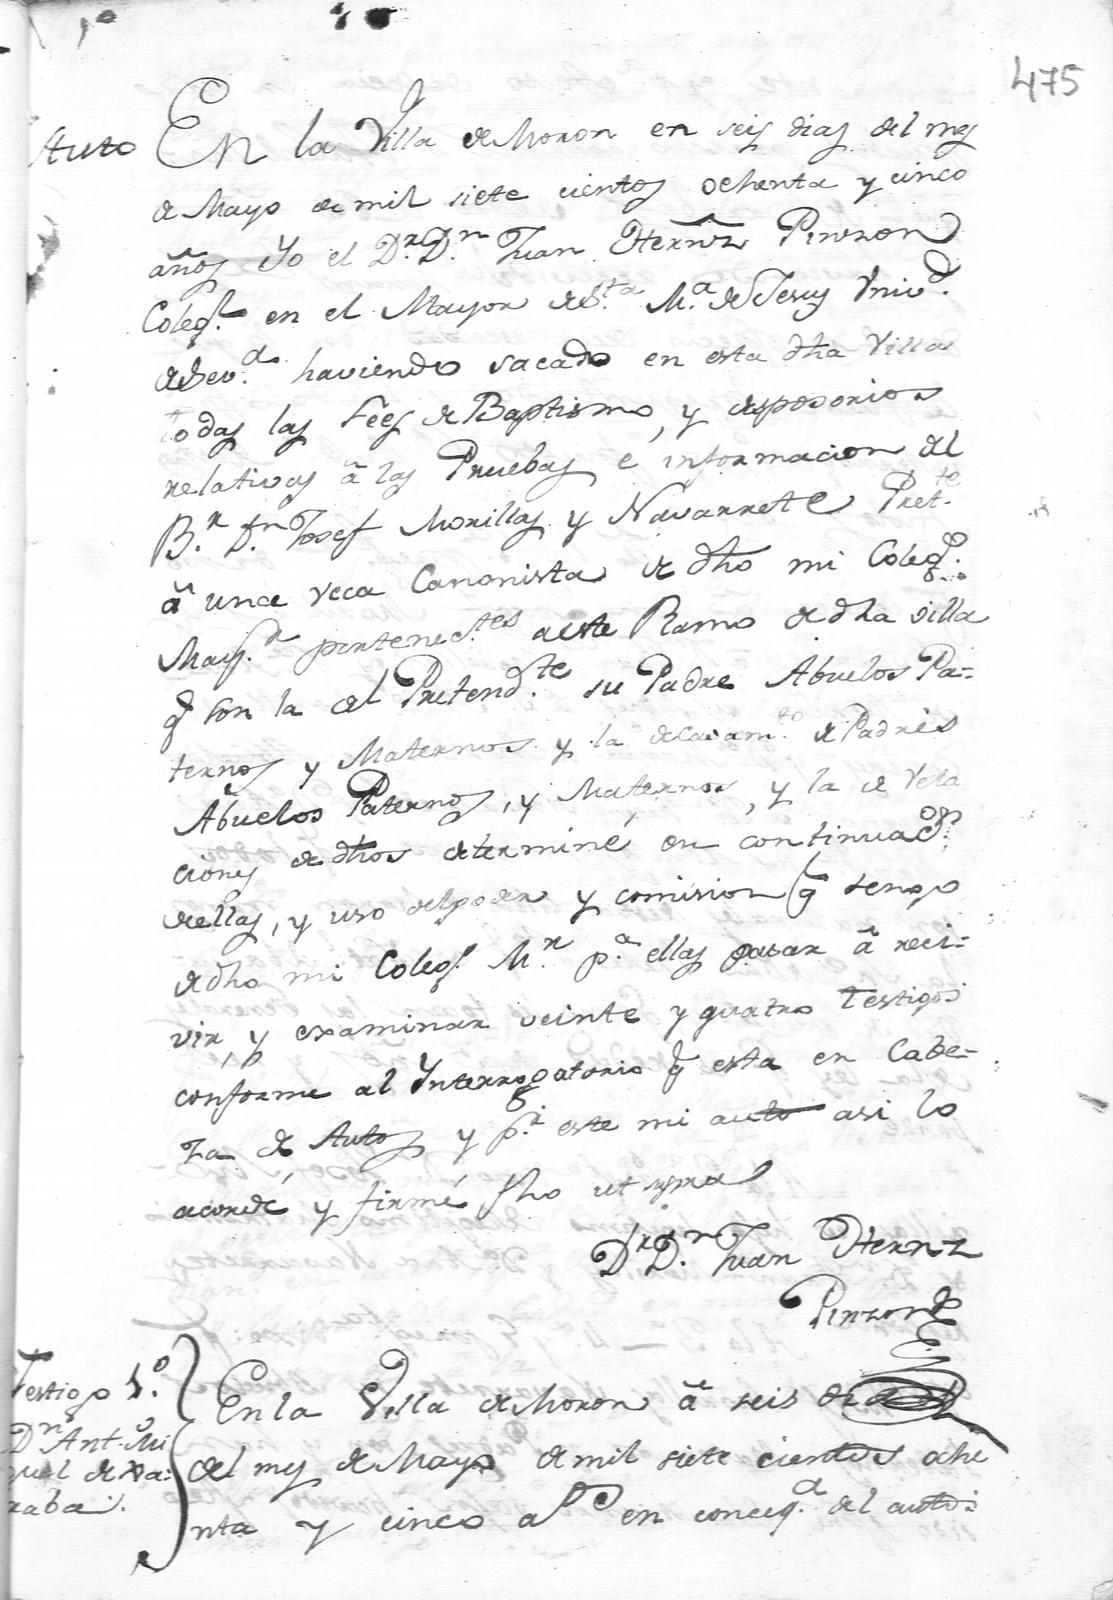 475
Auto En la Villa de Moron en seis dias del mes
de Mayo de mil siete cientos ochenta y cinco
años Yo el Dr. Dn Juan Hernnz Pinzon
Colegl. en el Mayor de Sta. Ma. de Jesus Univd.
de Sevd. haviendo sacado en esta dha Villa
todas las Fees de Baptismo, y desposorios
relativos à las Pruebas e informacion del
Br. Dn Josef Morillas y Navarrete Prette.
à una veca Canonista de dho mi Colego.
Mayr. pertenectes a este Ramo de dha villa
q son la del Pretendte. su Padre Abuelos Pa=
ternos y Maternos y la de Casamto. de Padres
Abuelos Paternos, y Maternos, y la de Vela
ciones de dhos determiné en continuacon.
de ellas, y uso del poder y comision q tengo
de dho mi Colegl. Mr. pa. ellas pasar à reci=
vir, y examinar veinte y quatro Testigos
conforme al Ynterrogatorio q esta en Cabe=
za de Autos y pr. este mi auto asi lo
acordé, y firmé fho ut supra
Dr. Dn. Juan Hernnz
Pinzon
Testigo 1o.
Dn Anto. Mi
guel de
raba.
En la Villa de Moron à seis
del mes de Mayo de mil siete cientos oche
nta y cinco as en conseqa. del auto